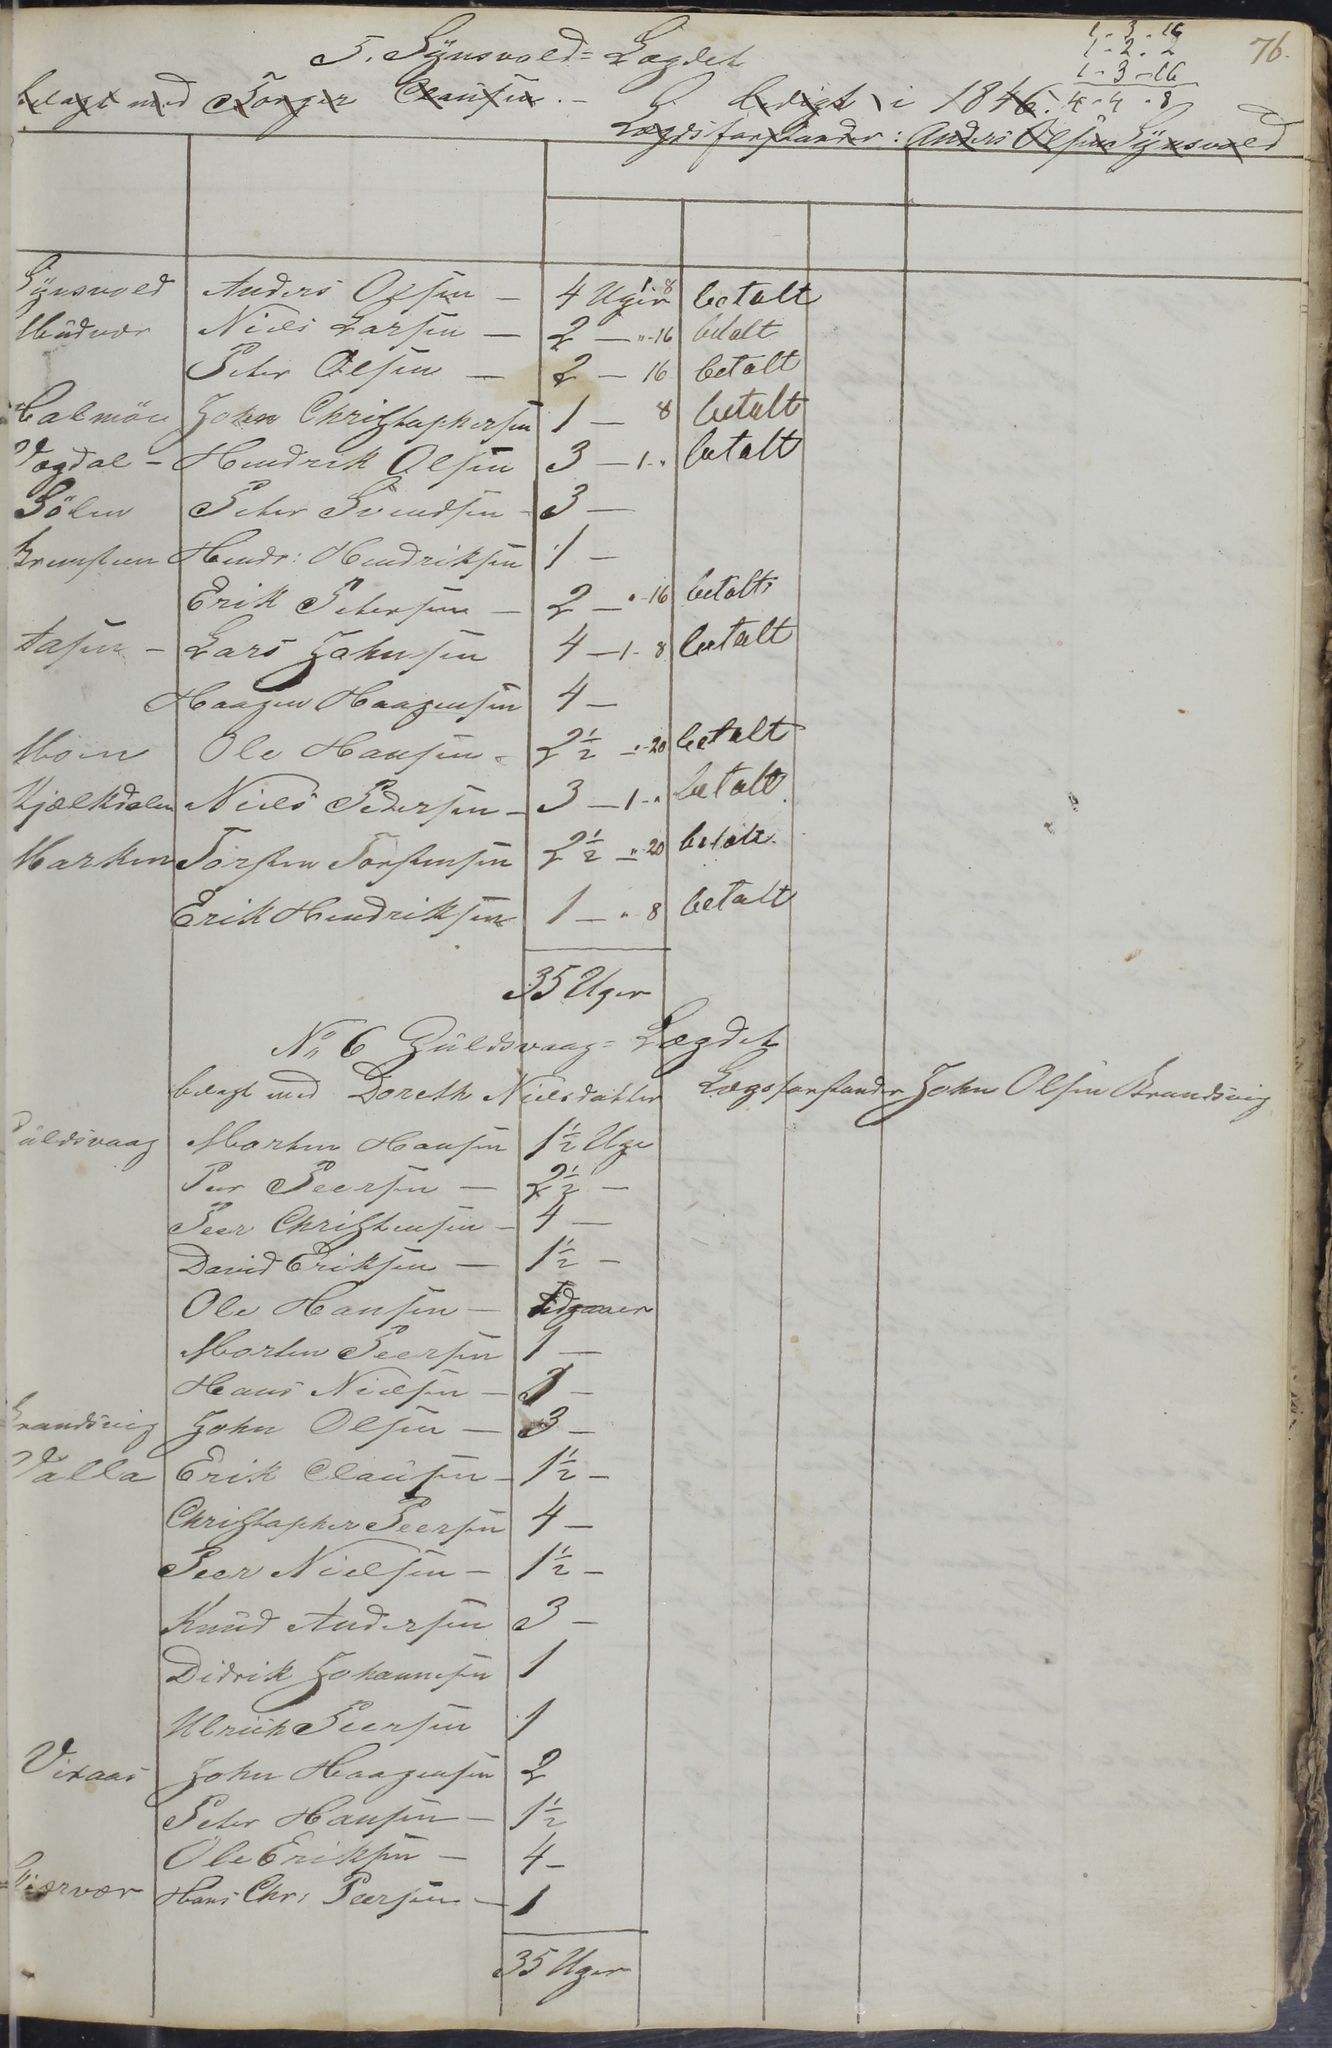 76.
1 - 3 - 16
1 - 2 - 2
1 - 3 - 16
4 - 4 - 8
5. Synsvold = Lægdet
belagt med Torger Clausen. - ledigt i 1846.
Lægdsforstander: Anders Olsen Synsvold
Synsvold Anders Olsen - 4 Uger 1 8 betalt
Niels Larsen - 2 - " - 16 betalt
Peter Olsen - 2 - 16 betalt
Calmöen John Christophersen 1 - 8 betalt
Vogdal - Hendrik Olsen 3 - 1 - " betalt
Sölen Peter Svendsen - 3 -
Hendr: Hendriksen 1 -
Erik Petersen - 2 - " - 16 betalt
Aasen - Lars Johnsen 4 - 1 - 8 betalt
Haagen Haagensen 4 -
Moen Ole Hansen - 2½ - " - 20 betalt
Kjælkdalen Niels Pedersen - 3 - 1 - " betalt
Marken Torsten Torstensen 2½ - " - 20 betalt
Erik Hendriksen 1 - " 8 betalt
35 Uger
No 6 Guldsvaag = Lægdet
belagt med Doreth Nielsdatter Lægsforstander John Olsen Brandsvig
Guldsvaag Morten Hansen 1½ Uge
Peer Peersen - 2½ -
Peer Christensen - 4 -
David Eriksen - 1½ -
Ole Hansen -
Morten Peersen 1 -
Hans Nielsen - 1 -
Brandsvig John Olsen - 3 -
Valla Erik Clausen - 1½ -
Christopher Peersen 4 -
Peer Nielsen - 1½ -
Knud Andersen 3 -
Didrik Johannesen 1
Ulrick Peersen 1
Viraas John Haagensen 2
Peter Hansen - 1½
Ole Eriksen - 4 -
Hans Chr: Peersen - 1
35 Uger